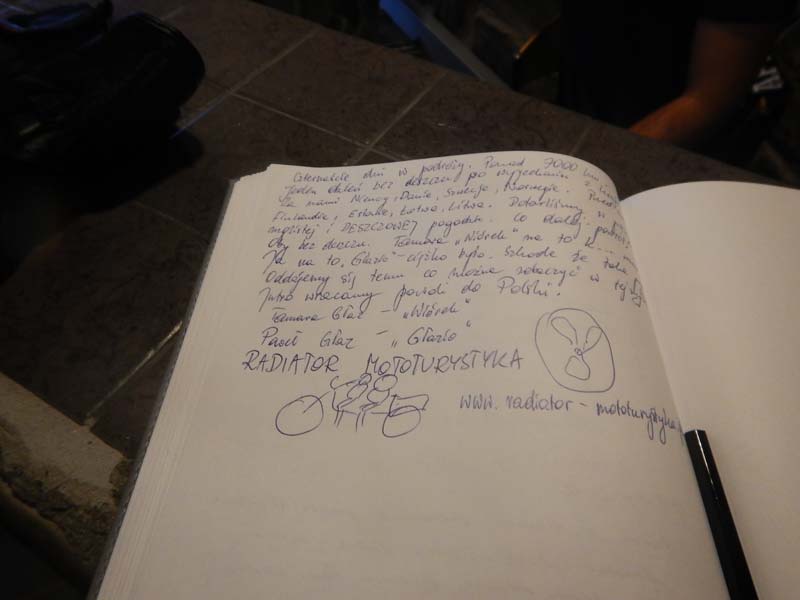 Czternaście dni w podróży. Ponad 7000 km
Jeden dzień bez deszczu po wyjechaniu z
Za nami Niemcy, Dania, Szwecja, Norwegia,
Finlandia, Estonia, Łotwa, Litwa. Dotarliśmy w
mglistej i DESZCZOWEJ pogodzie. Co dalej
Oby bez deszczu. Tamara „Wiórek" na to K---
Ja na to, Głazio" - ciężko było. Szkoda że
Oddajemy się temu co można zobaczyć w tej
Jutro wracamy powoli do Polski.
Tamara Głaz - „Wiórek"
Paweł Głaz - „Głazio"
RADIATOR MOTOTURYSTYKA
www.radiator-mototurystyka